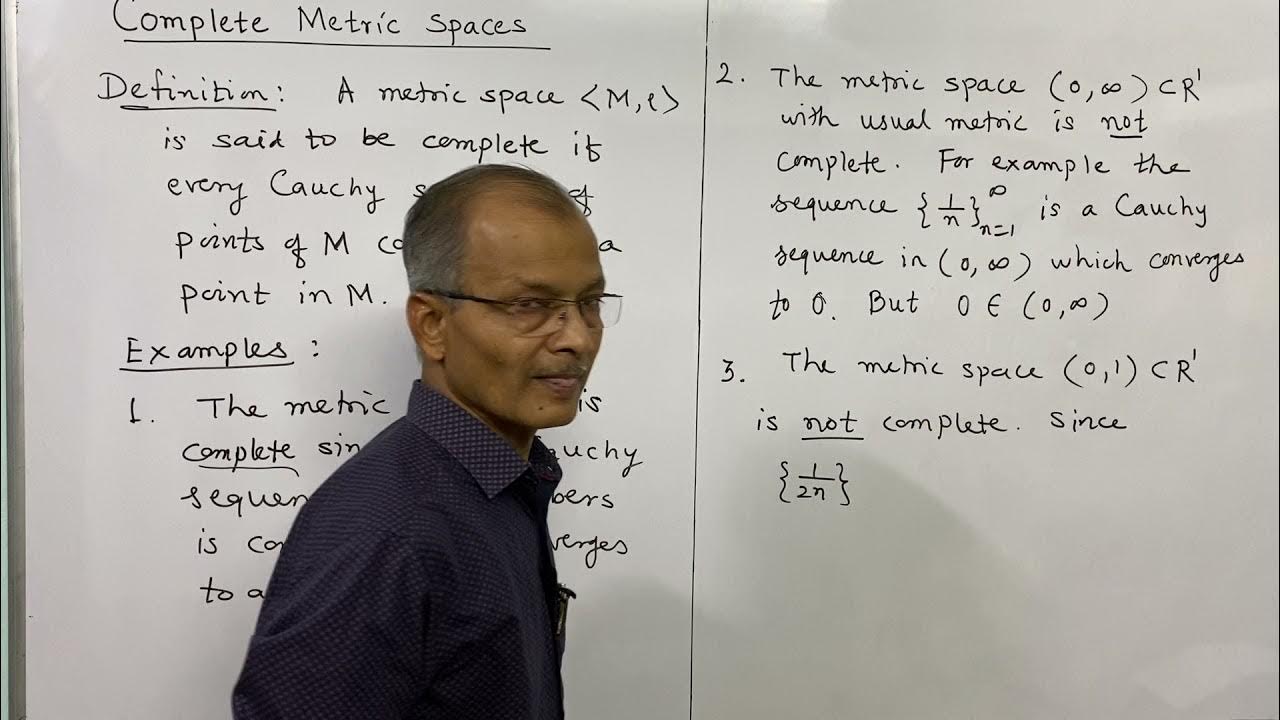 Complete Metric Spaces
Definition: A metric space <M, ρ>
is said to be complete if
every Cauchy of
points of M a
point in M.
Examples:
1. The metric is
complete
is
to
2. The metric space (0,∞) ⊂ R¹
with usual metric is not
complete. For example the
sequence {1/n}∞n=1 is a Cauchy
sequence in (0,∞) which converges
to 0. But 0 ∈ (0,∞)
3. The metric space (0,1) ⊂ R¹
is not complete. Since
{1/2n}